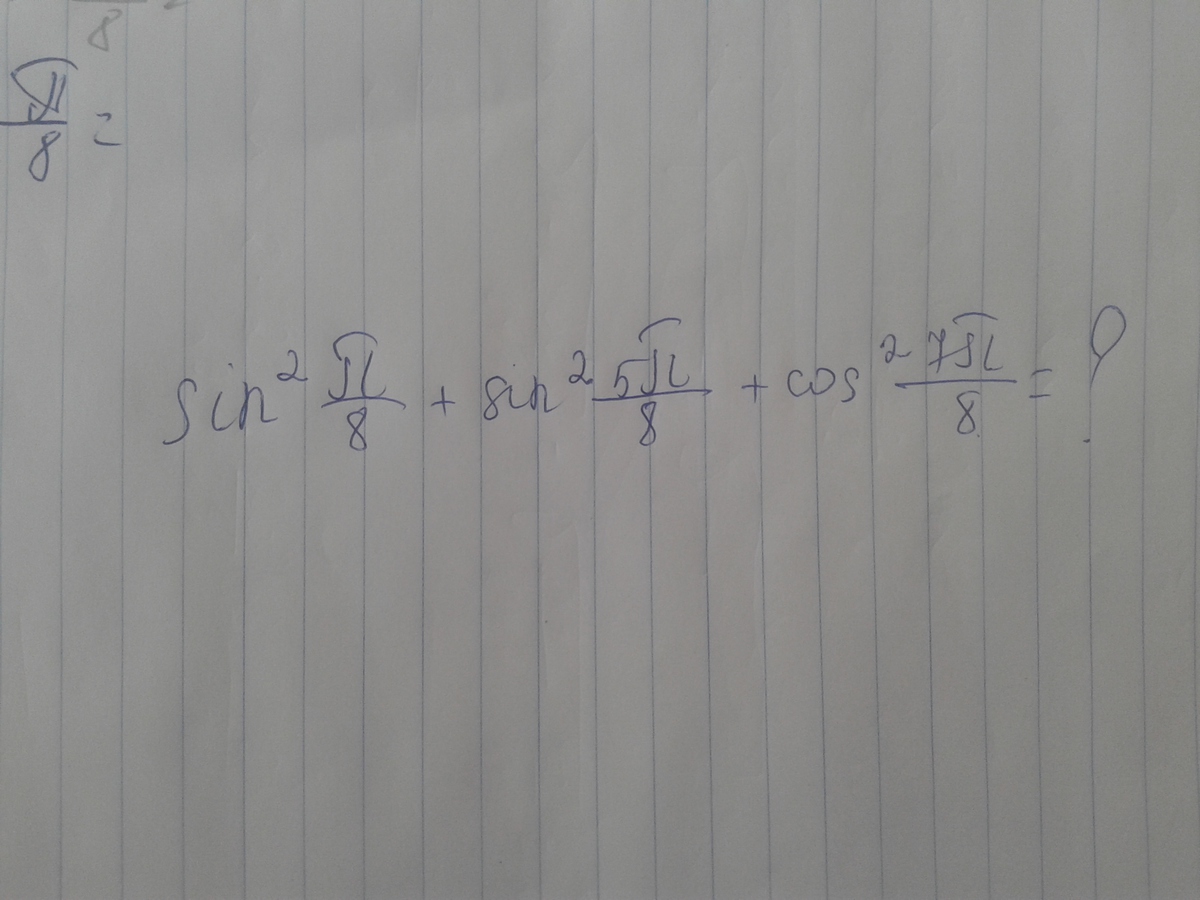 8
π/8 =
sin² π/8 + sin² 5π/8 + cos² 7π/8 = ?